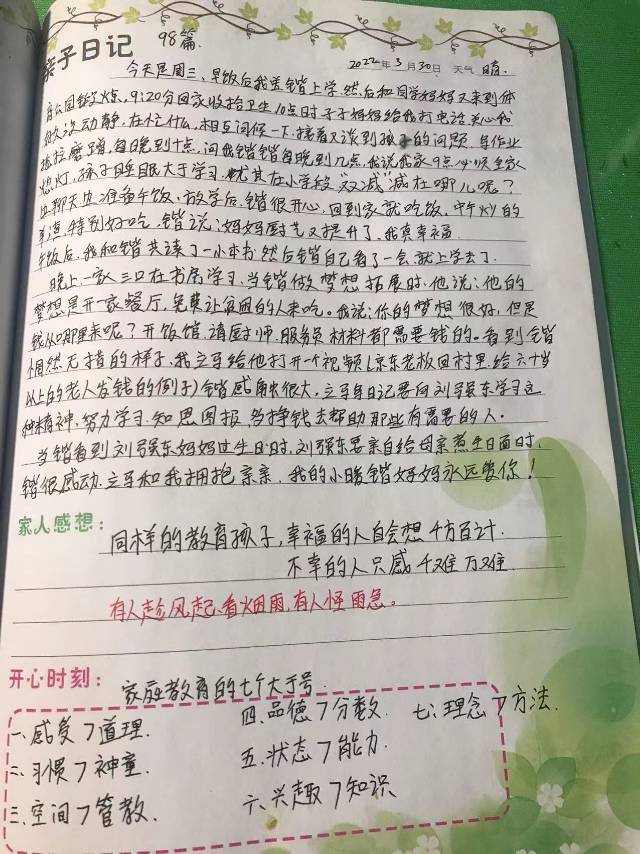 亲子日记 98篇.
2022年3月30日 天气 晴.
今天是周三、早饭后我送锴上学.然后和同学妈妈又来到体
育公园锻炼、9:20分回家收拾卫生10点时子子妈妈给我打电话关心我
动静.在忙什么.相互问候一下.接着又谈到孩子的问题.写作业
拖拉磨蹭.每晚到十点.问我锴锴每晚到几点.我说我家9点必须全家
熄灯.孩子睡眠大于学习.尤其在小学段"双减"减在哪儿呢?
边聊天边准备午饭.放学后.锴很开心.回到家就吃饭.中午炒的
特别好吃.锴说:妈妈厨艺又提升了.我真幸福
午饭后.我和锴共读了一小本书.然后锴自己看了一会就上学去了.
晚上一家三口在书房学习.当锴做梦想拓展时.他说:他的
梦想是开一家餐厅.免费让贫困的人来吃。我说:你的梦想很好,但是
钱从哪里来呢?开饭馆.请厨师.服务员材料都需要钱的。看到锴
惘然无措的样子.我立马给他打开一个视频(京东老板回村里.给六十岁
以上的老人发钱的例子)锴感触很大.立马写日记要向刘强东学习这
种精神.努力学习.知恩图报.多挣钱去帮助那些有需要的人.
当锴看到刘强东妈妈过生日时.刘强东要亲自给母亲煮生日面时.
锴很感动.立马和我拥抱亲亲.我的小暖锴妈妈永远爱你!
家人感想:
同样的教育孩子,幸福的人自会想千方百计.
不幸的人只感千难万难
有人趁风起、看烟雨,有人怪雨急。
开心时刻: 家庭教育的七个大于号.
一、感受>道理. 四.品德>分数. 七:理念>方法.
二、习惯>神童. 五.状态>能力.
三、空间>管教. 六、兴趣>知识